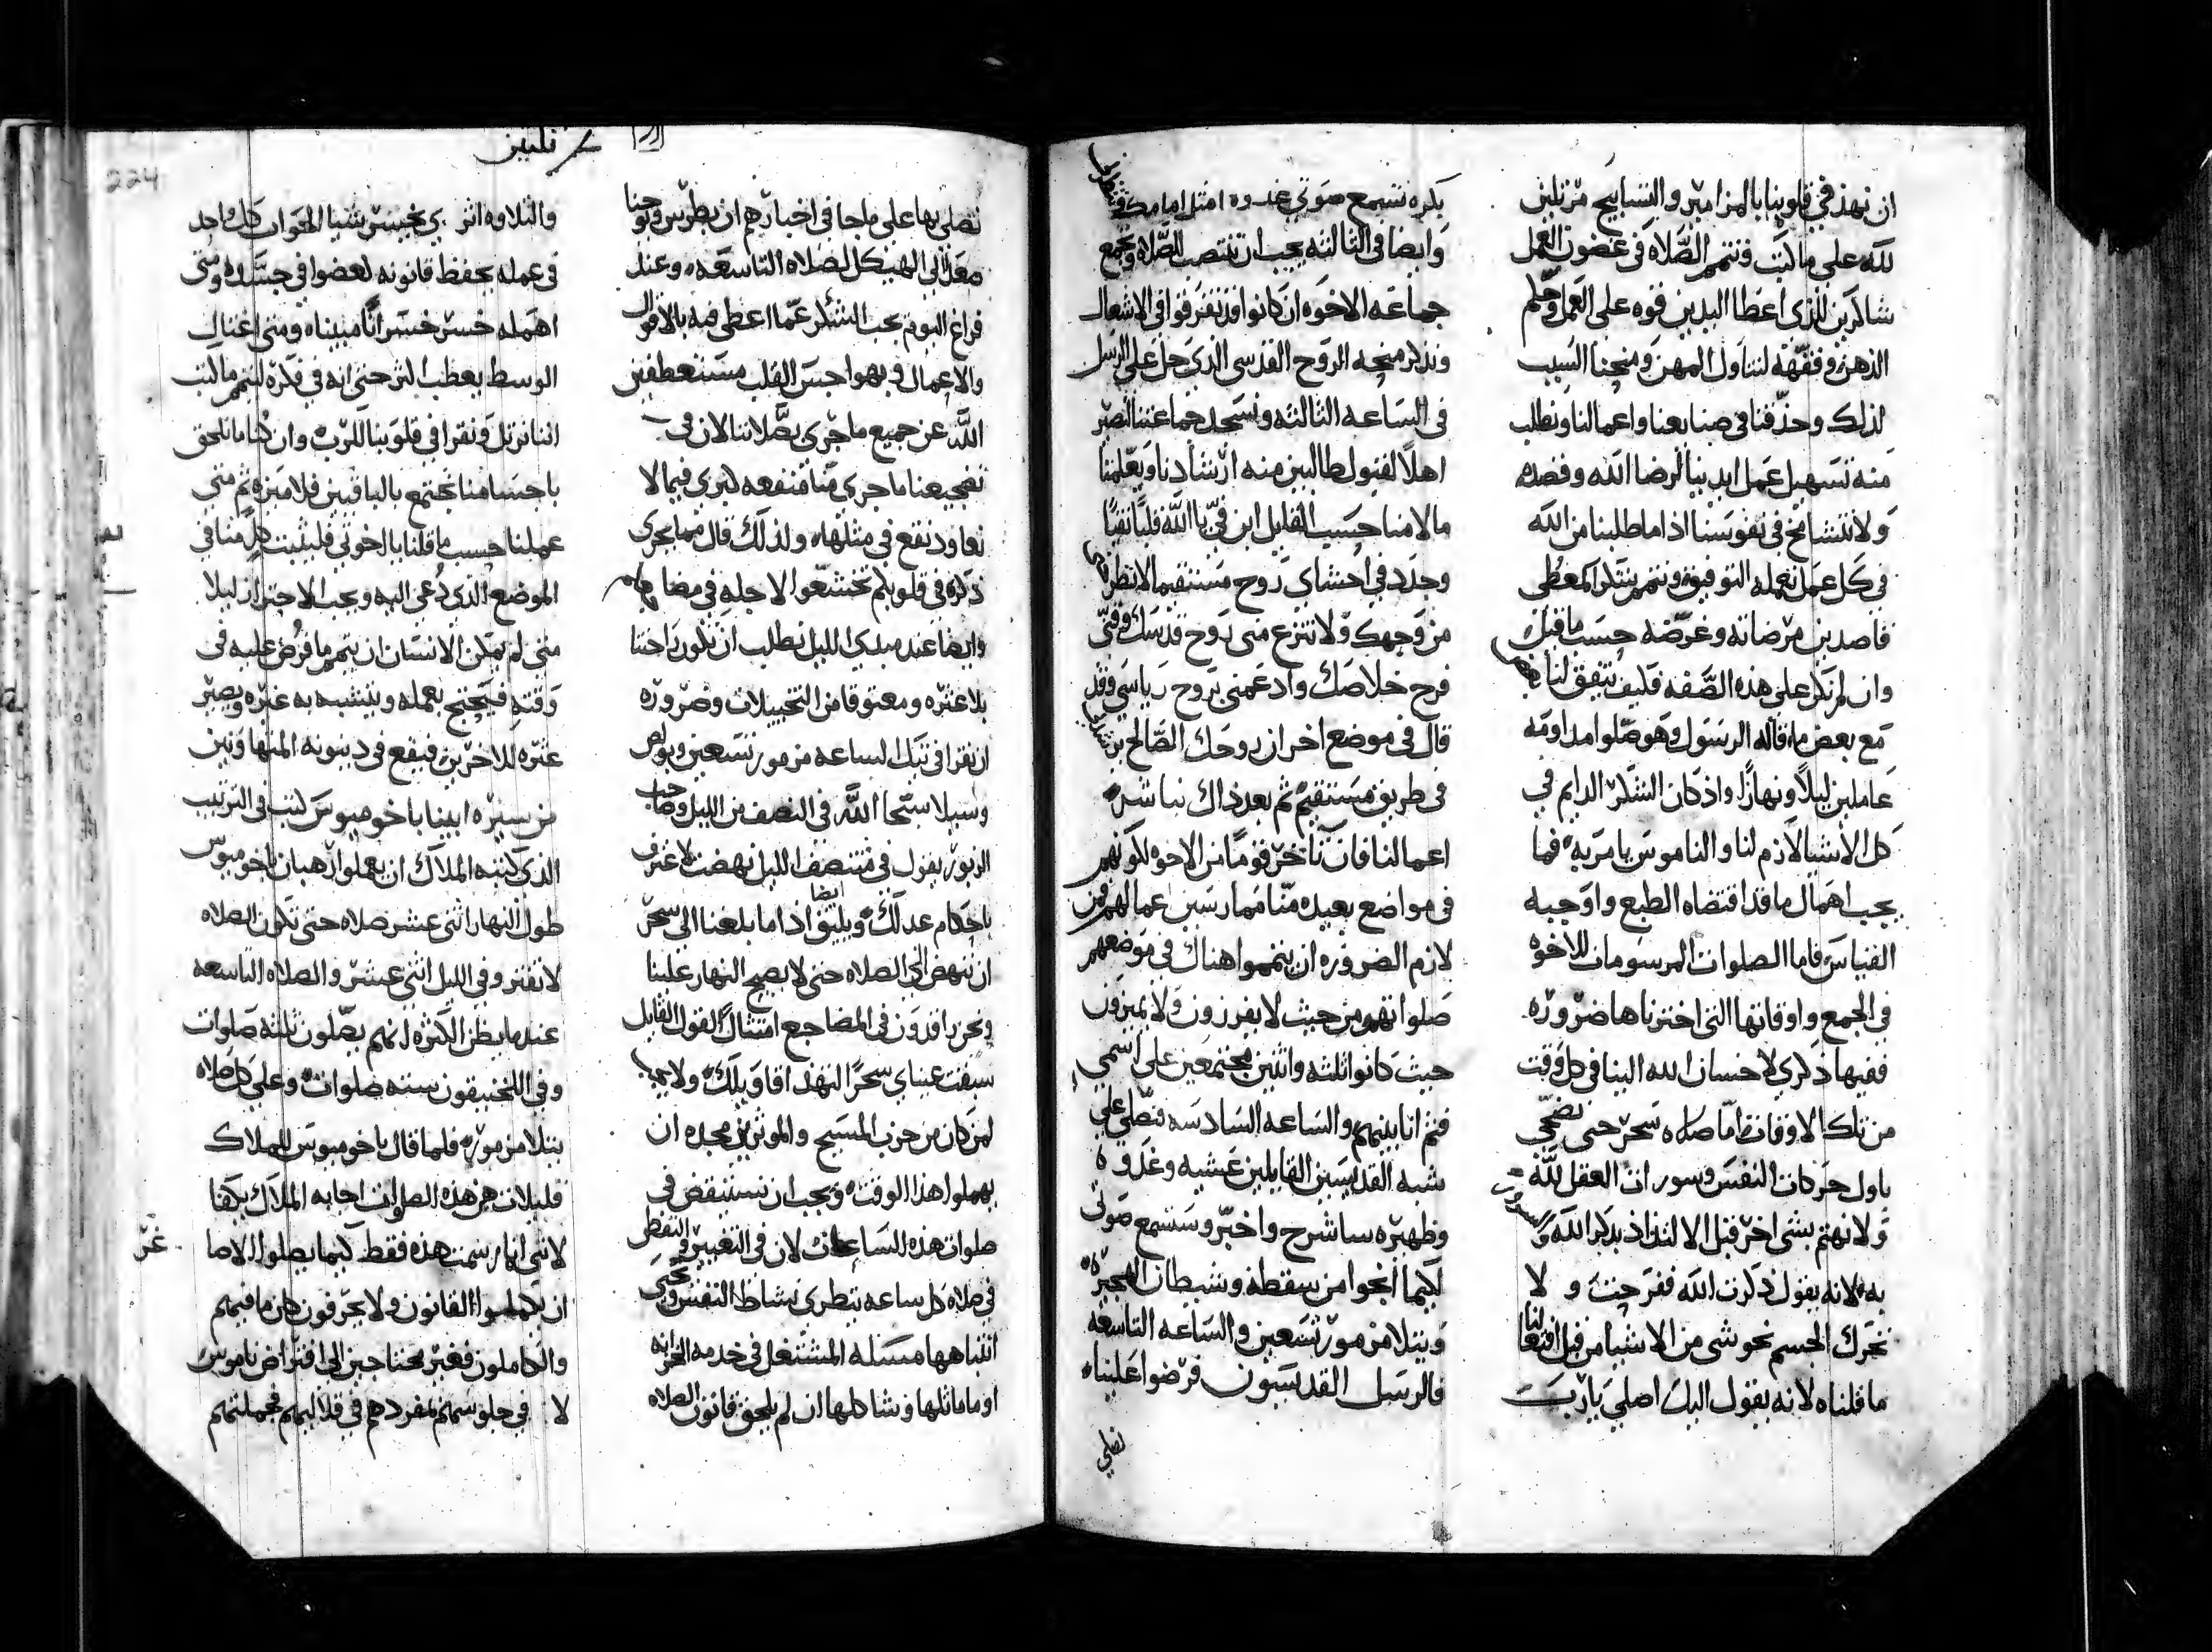 ان نهذ في قلوبنا بالمزامير والتسابيح مرتلين
لله على ما كتب وتتم الصلاه في غضون العمل
شاكرين للذي اعطا اليدين قوه على العمل وحكم
الذهن وفقهه لتناول المهن ومنحنا السبب
لذلك وحذقنا في صنايعنا واعمالنا ونطلب
منه تسهيل عمل ايدينا لرضا الله وقصده
ولا نتشامخ في نفوسنا اذا ما طلبنا من الله
في كل عمل نعمله التوفيق ونتمم شكر المعطي
قاصدين مرضاته وغرضه حسب ما قيل
وان لم نكن على هذه الصفه فكيف يتفق لنا
مع بعض ما قاله الرسول وهو صلوا مداومه
عاملين ليلا ونهارا واذ كان الشكر الدايم في
كل الاشيا لازم لنا والناموس يامر به فما
يجب اهمال ما قد اقتضاه الطبع واوجبه
القياس فاما الصلوات المرسومات للاخوه
في الجمع واوقاتها التي اخترناها ضروره
ففيها ذكري لاحسان الله الينا في كل وقت
من تلك الاوقات اما صلاه سحر حتى نضحي
باول حركات النفس وسورات العقل لله
ولا نهتم بشي اخر قبل الالتذاذ بذكر الله
به لانه يقول ذكرت الله ففرحت ولا
نحرك الجسم نحو شي من الاشيا من قبل افعالنا
ما قلناه لانه يقول اليك اصلي يارب
بكره تسمع صوتي غدوه امثل امامك
وايضا في الثالثه يجب ان تنتصب للصلاه وتجمع
جماعه الاخوه ان كانوا قد تفرقوا في الاشغال
ونذكر منحه الروح القدسي الذي حل على الرسل
في الساعه الثالثه ونسجد جماعتنا لنصير
اهلا لقبول طالبين منه ارشادنا ويعلمنا
ما لامنا حسب القايل ابن في يا الله قلبا نقيا
وجدد في احشاي روح مستقيما لا تطرحني
من وجهك ولا تنزع مني روح قدسك
فرح خلاصك وادعمني بروح رياسي وقد
قال في موضع اخر ان روحك الصالح يرشدني
في طريق مستقيم ثم بعد ذاك نباشر
اعمالنا فان تاخر قوما من الاخوه لكونهم
في مواضع بعيده منا ممارسين عمالهم فمن
لازم الضروره ان يتمموا هناك في موضعهم
صلواتهم من حيث لا يفرزون ولا يميزون
حيث كانوا ثلثه واثنين مجتمعين على اسمي
فثم انا بينهم والساعه السادسه فنصلي على
شبه القديسين القايلين عشيه وغدوه
وظهيره ساشرح واخبر وستسمع صوتي
لكيما انجوا من سقطه وشيطان الهجيره
ويتلا مزمور تسعين والساعه التاسعه
فالرسل القديسون فرضوا علينا
نصلي
نصلي بها على ما جا في اخبارهم ان بطرس ويوحنا
صعدا الى الهيكل لصلاه التاسعه وعند
فراغ اليوم يجب الشكر عما اعطي فيه بالاقوال
والاعمال وبهواجس القلب مستعطفين
الله عن جميع ما جرى بصلاتنا لان في
تفجيعنا ما جرى منا منفعه كبرى فيما لا
نعاود نقع في مثلها ولذلك قال مما يجري
ذكره في قلوبكم تخشعوا لاجله في مضاجعكم
وايضا عند مبدى الليل نطلب ان تكون راحتنا
بلا عثره ومعتوقا من التخييلات وضروره
ان نقرا في تيك الساعه مزمور تسعين وبولص
وسيلا سبحا الله في النصف من الليل وصاحب
الزبور يقول في منتصف الليل نهضت لاعترف
باحكام عدلك ويليق ايضا اذا ما بلغنا الى سحر
ان ننهض الى الصلاه حتى لا يصبح النهار علينا
ونحن راقدون في المضاجع امتثالا لقول القايل
سبقت عيناي سحرا لتهذ اقاويلك ولا يجب
لمن كان من حزب المسيح والموثرين مجده ان
يهملوا هذا الوقت ويجب ان نستيقض في
صلوات هذه الساعات لان في التغيير والتيقظ
في صلاه كل ساعه يتطرى نشاط النفس وتحيى
انتباهها مسئله المشتغل في خدمه الخزانه
او ما ماثلها وشاكلها ان لم يلحق قانون الصلاه
224
والتلاوه اثر يخسر شيا بل يجوز ان كل واحد
في عمله يحفظ قانونه كعضوا في جسده ومتى
اهمله خسر خسرانا مبيناه ومتى اغتال
الوسط يعطب اكثر حتى انه في فكره لنتمم ما كتب
اننا نرتل ونقرا في قلوبنا للرب وان كنا ما نلحق
باجسامنا نجتمع بالباقيين فلا ميزه ثم متى
عملنا حسب ما قلنا يا اخوتي فليثبت كل منا في
الموضع الذي دعي اليه ويجب الاحتراز ليلا
متى لم يمكن الانسان ان يتمم ما فرض عليه في
وقته فيحتج بعمله ويتشبه به غيره ويصير
عثره للاخرين فيقع في دينونه المتهاونين
من سيره ابينا باخوميوس كتب في الترتيب
الذي كتبه الملاك ان يعملوا رهبان باخوميوس
طول النهار اثني عشر صلاه حتى تكون الصلاه
لا تفتر وفي الليل اثني عشر والصلاه التاسعه
عندما يظن الكثره انهم يصلون ثلثه صلوات
وفي اللخنيقون سته صلوات وعلى كل صلاه
يتلا مزموره فلما قال باخوميوس للملاك
قليلات هن هذه الصلوات اجابه الملاك يكفا
لانني انا رسمت هذه فقط كيما يصلوا الاصا
غر
ان يكملوا القانون ولا يحرفون كل ما فيهم
والكاملون فغير محتاجين الى افتراض ناموس
لا في جلوسهم بمفردهم في قلاليهم فجملتهم